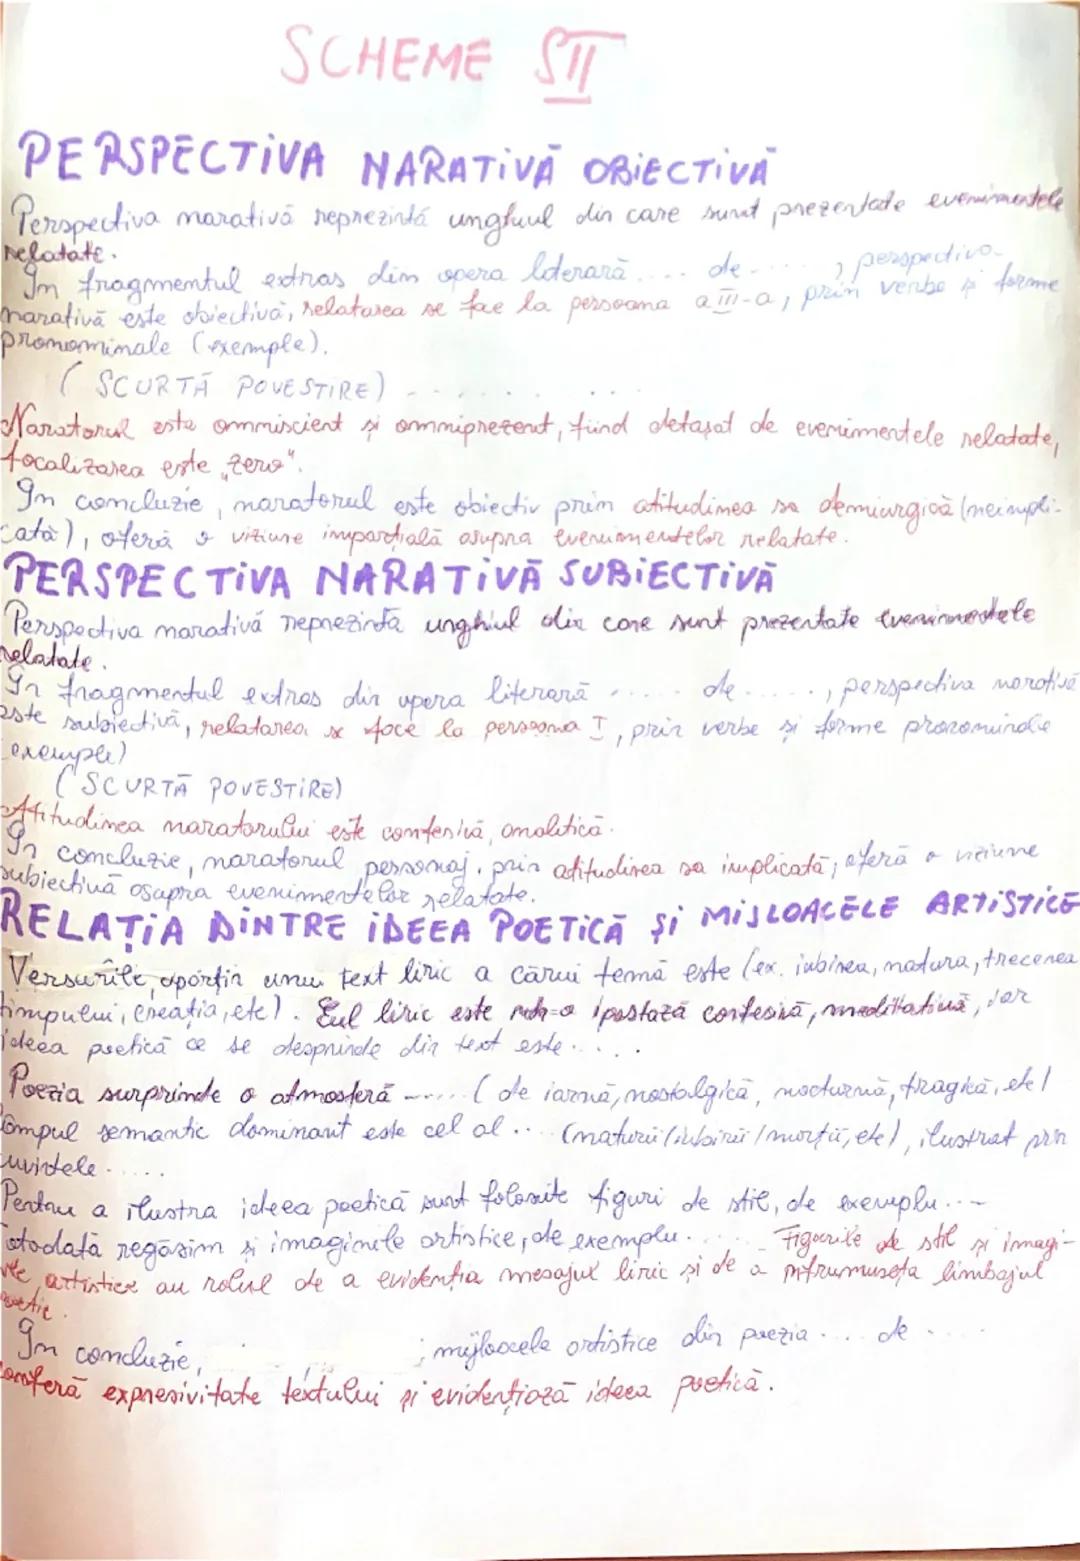 SCHEME SII
PERSPECTIVA NARATIVĂ OBIECTIVĂ
Perspectiva narativă reprezintă unghiul din care sunt prezentate evenimentele
relatate.
În fragmentul extras din opera literară .... de ....., perspectiva
narativă este obiectivă, relatarea se face la persoana a III-a, prin verbe și forme
pronominale (exemple).
(SCURTĂ POVESTIRE) ........
Naratorul este omniscient și omniprezent, fiind detașat de evenimentele relatate,
focalizarea este „zero".
În concluzie, naratorul este obiectiv prin atitudinea sa demiurgică (neimpli-
cată), oferă o viziune imparțială asupra evenimentelor relatate.
PERSPECTIVA NARATIVĂ SUBIECTIVĂ
Perspectiva narativă reprezintă unghiul din care sunt prezentate evenimentele
relatate.
În fragmentul extras din opera literară ..... de ....., perspectiva narativă
este subiectivă, relatarea se face la persoana I, prin verbe și forme pronominale
(exemple)
(SCURTĂ POVESTIRE)
Atitudinea naratorului este confesivă, analitică.
În concluzie, naratorul personaj, prin atitudinea sa implicată, oferă o viziune
subiectivă asupra evenimentelor relatate.
RELAȚIA DINTRE IDEEA POETICĂ ȘI MIJLOACELE ARTISTICE
Versurile aparțin unui text liric a cărui temă este (ex. iubirea, natura, trecerea
timpului, creația, etc). Eul liric este într-o ipostază confesivă, meditativă, iar
ideea poetică ce se desprinde din text este ....
Poezia surprinde o atmosferă ..... (de iarnă, nostalgică, nocturnă, tragică, etc)
Câmpul semantic dominant este cel al .... (naturii/iubirii/morții, etc), ilustrat prin
cuvintele .....
Pentru a ilustra ideea poetică sunt folosite figuri de stil, de exemplu ...
Totodată regăsim și imaginile artistice, de exemplu..... Figurile de stil și imagi-
nile artistice au rolul de a evidenția mesajul liric și de a înfrumuseța limbajul
poetic.
În concluzie, mijloacele artistice din poezia .... de ....
conferă expresivitate textului și evidențiază ideea poetică.